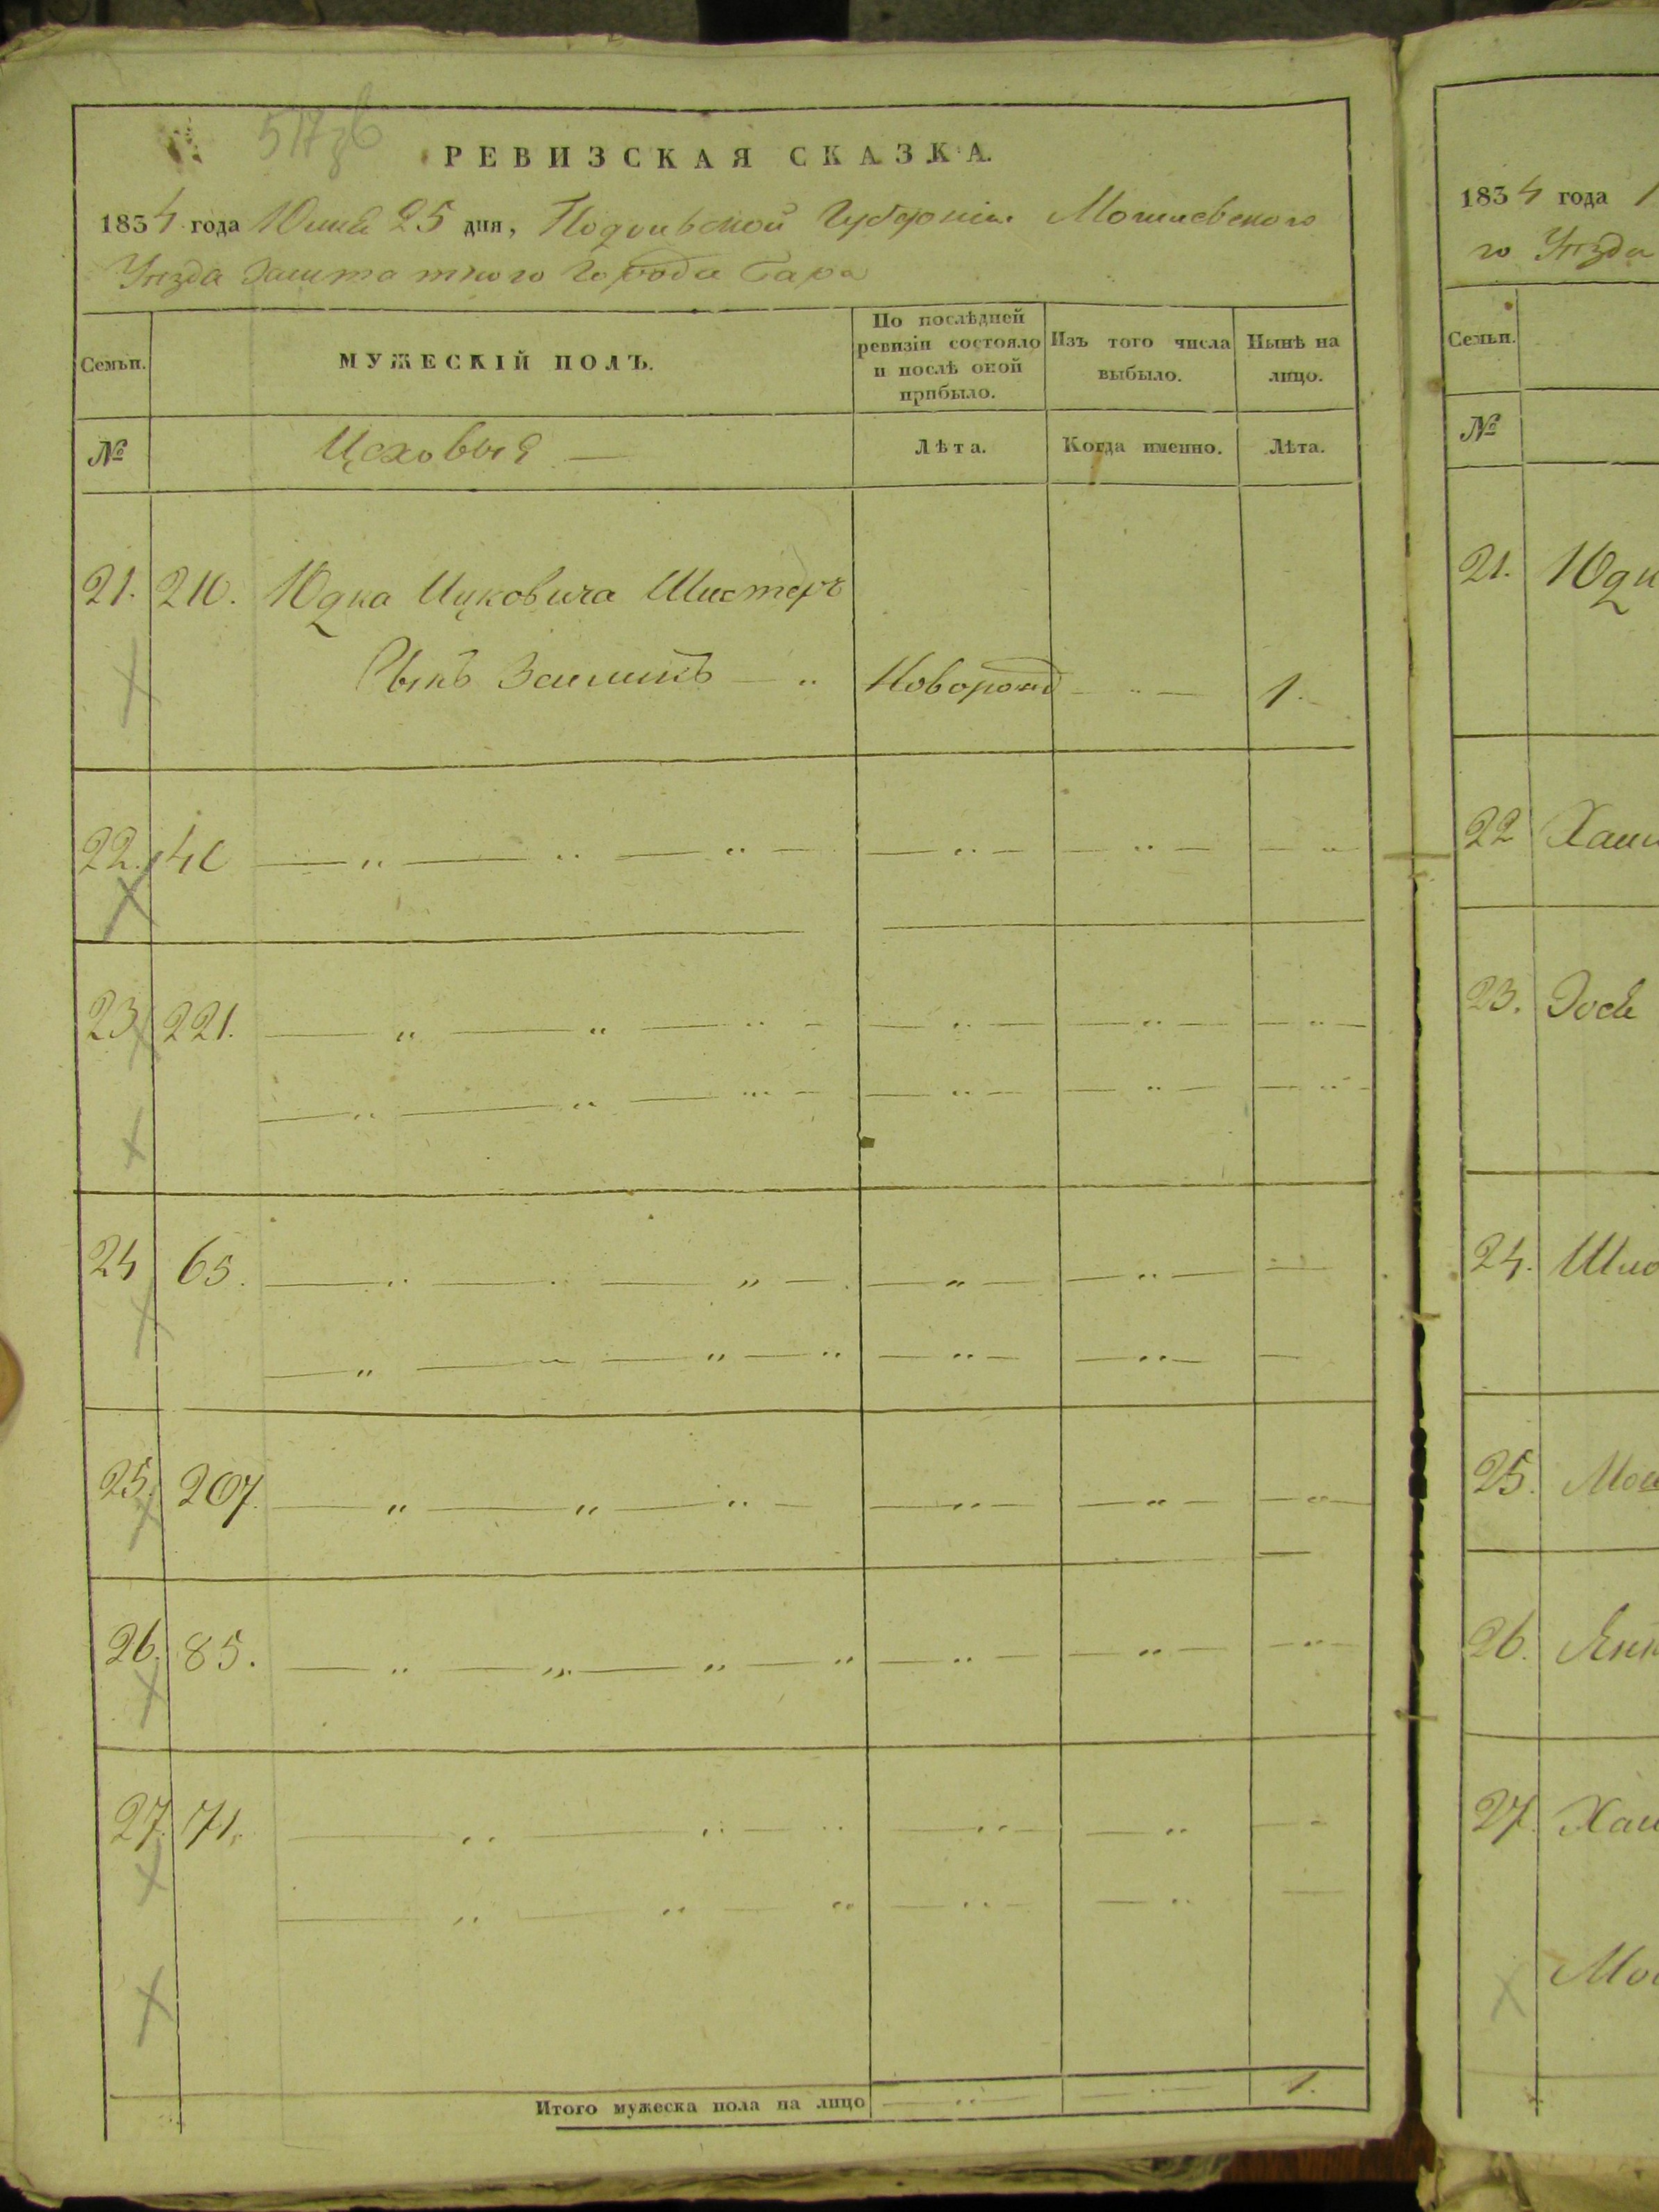 РЕВИЗСКАЯ СКАЗКА.
1834 года Июня 25 дня, Подольской Губернiи Могилевского
Уѣзда Заштатного Города Бара
Семьи.
МУЖЕСКIЙ ПОЛЪ.
По послѣдней ревизiи состояло и послѣ оной прибыло.
Изъ того числа выбыло.
Нынѣ на лицо.
№
Цеховыя
Лѣта.
Когда именно.
Лѣта.
21. 210. Юдка Ицковича Шистеръ
Сынъ Новорожд 1.
22.
23 221.
24 65.
25. 207.
26. 85.
27. 71.
Итого мужеска пола на лицо 1.
1834 года
го Уѣзда
Семьи.
№
21. Юдк
22 Хаи
23.
24. Шло
25.
26. Янк
27. Хаи